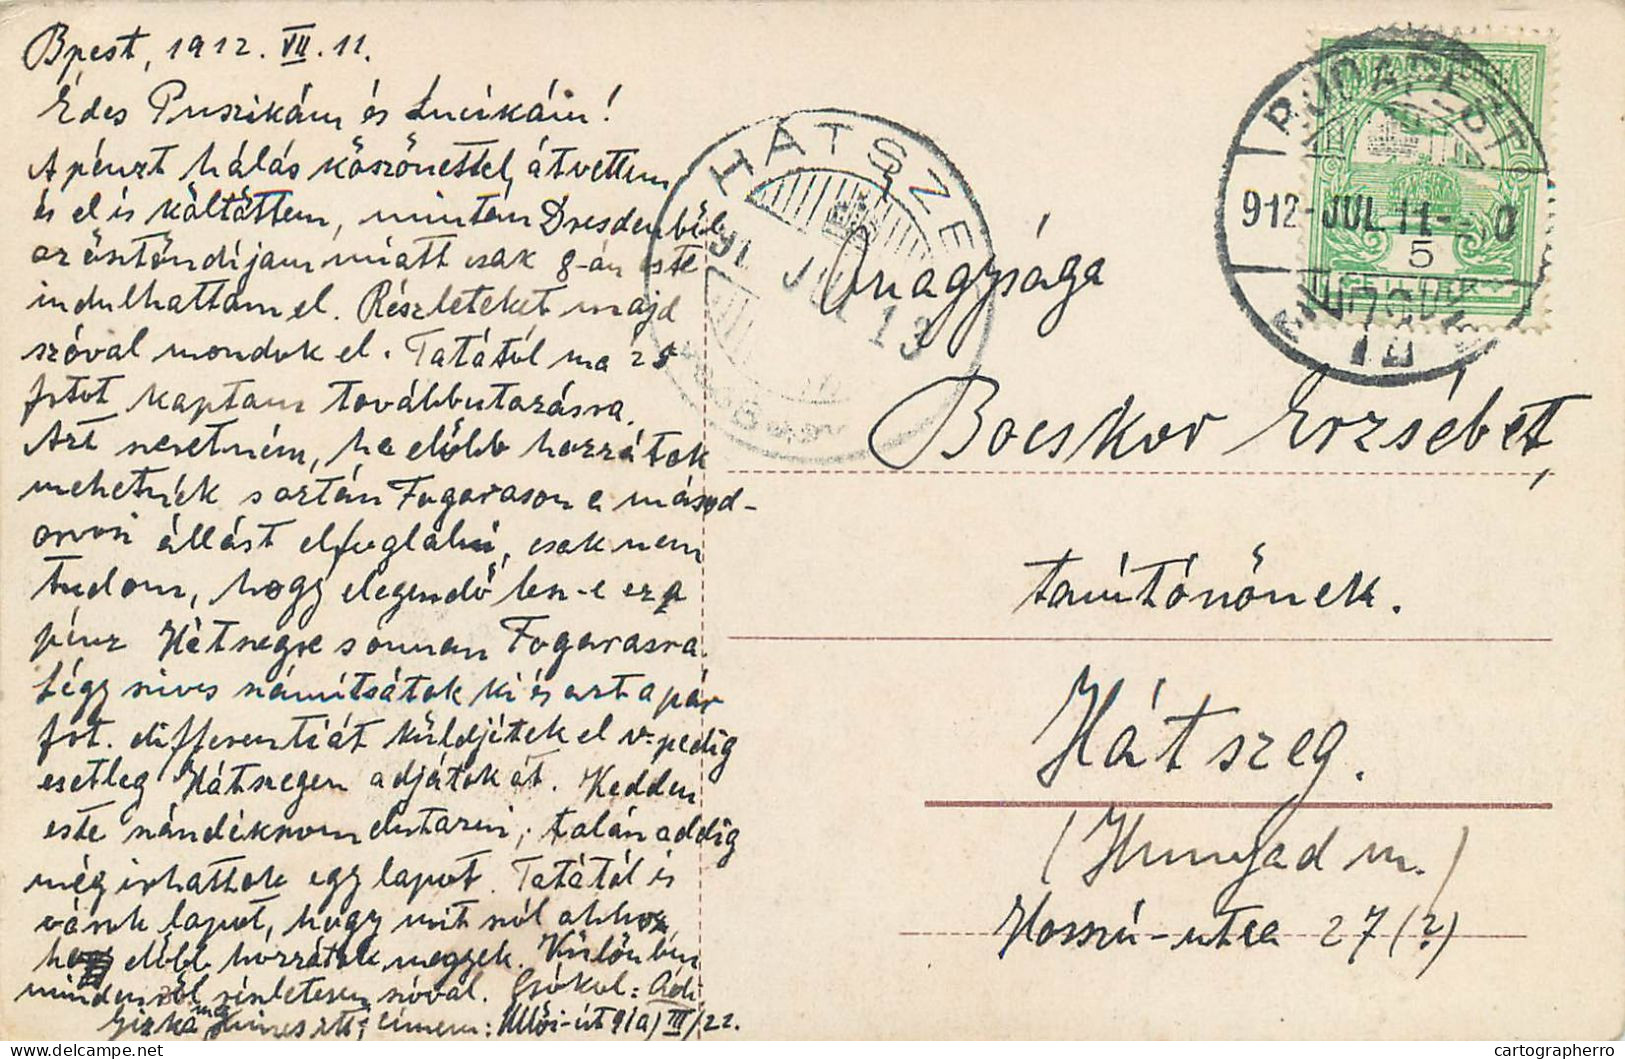 Bpest, 1912. VII. 11.
Édes Puszikám és Lucikám!
A pénzt hálás köszönettel átvettem
és el is költöttem, mintem Dresdenből
az ösztöndíjam miatt csak 8-án este
indulhattam el. Részleteket majd
szóval mondok el. Tatától ma 25
frtot kaptam továbbutazásra.
Azt szeretném, ha előbb hozzátok
mehetnék s aztán Fogarason a másod-
orvosi állást elfoglalni, csak nem
tudom, hogy elegendő lesz-e ez a
pénz Hátszegre s onnan Fogarasra.
Légy szíves számítsátok ki és azt a pár
frt. differentiát küldjétek el v. pedig
esetleg Hátszegen adjátok át. Kedden
este szándékozom elutazni, talán addig
még írhattok egy lapot. Tatától is
várok lapot, hogy mit szól ahhoz,
hogy előbb hozzátok megyek. Különben
mindenről részletesen szóval. Csókol: Adi
Gizka még címem: Üllői-út 91a) III/22.
HATSZEG
912 JUL 13
BUDAPEST
912 JUL 11
5
FILLÉR
Őnagysága
Bocskor Erzsébet,
tanítónőnek.
Hátszeg.
(Hunyad m.)
Hosszú-utca 27 (?)
cartographerro